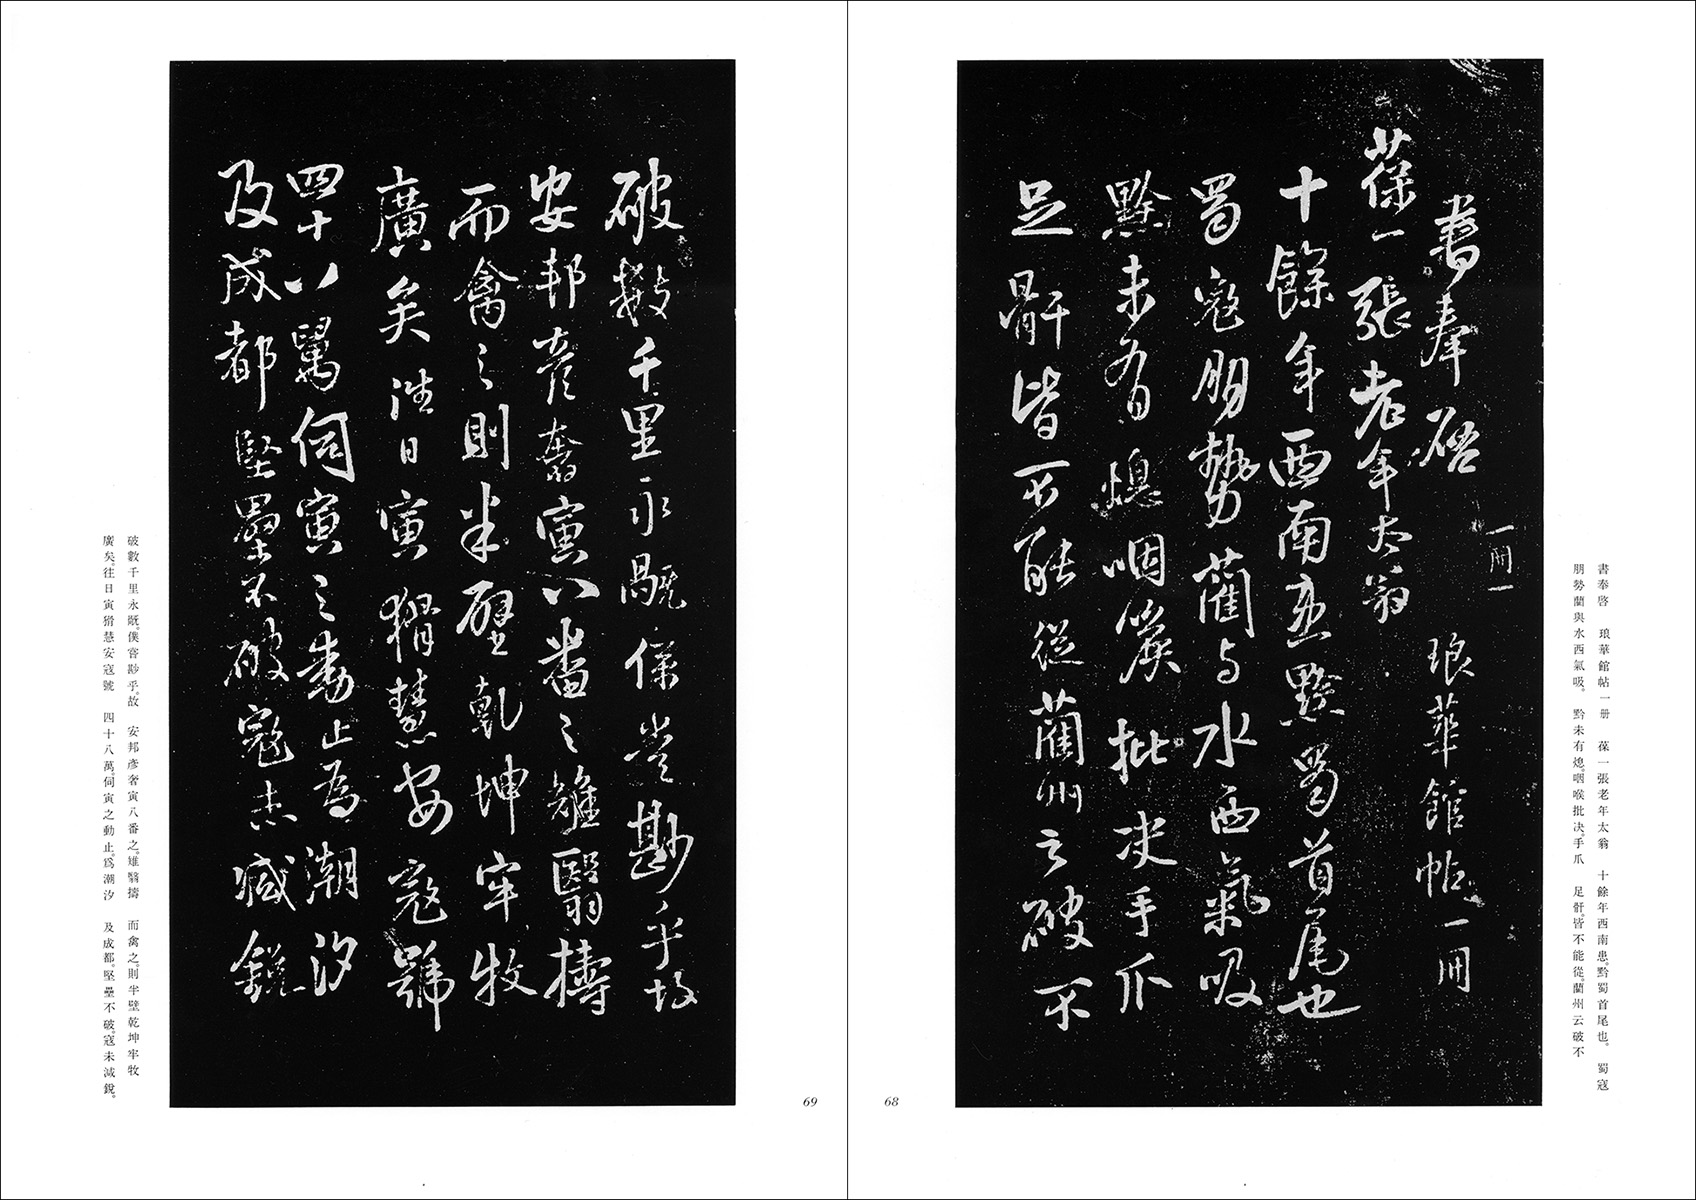 書奉啓　琅華館帖一册　葆一張老年太翁　十餘年西南患。黔蜀首尾也。　蜀寇
朋勢藺與水西氣吸。　黔未有熄。咽喉批決。手爪　足骭。皆不能從。藺州云破不
一開一
書奉啓　琅華館帖一冊
葆一張老年太翁
十餘年西南患黔蜀首尾也
蜀寇朋勢藺与水西氣吸
黔未有熄咽喉批决手爪
足骭皆不能從藺州云破不
68
69
破數千里永既僕嘗尠乎故
安邦彥奢寅八番之雄翳擣
而禽之則半壁乾坤牢牧
廣矣往日寅猾慧安寇號
四十八萬伺寅之動止為潮汐
及成都堅壘不破寇未減銳
破數千里永既。僕嘗尠乎。故　安邦彥奢寅八番之。雄翳擣　而禽之。則半壁乾坤牢牧
廣矣。往日寅猾慧安寇號　四十八萬。伺寅之動止。爲潮汐　及成都。堅壘不破。寇未減銳。